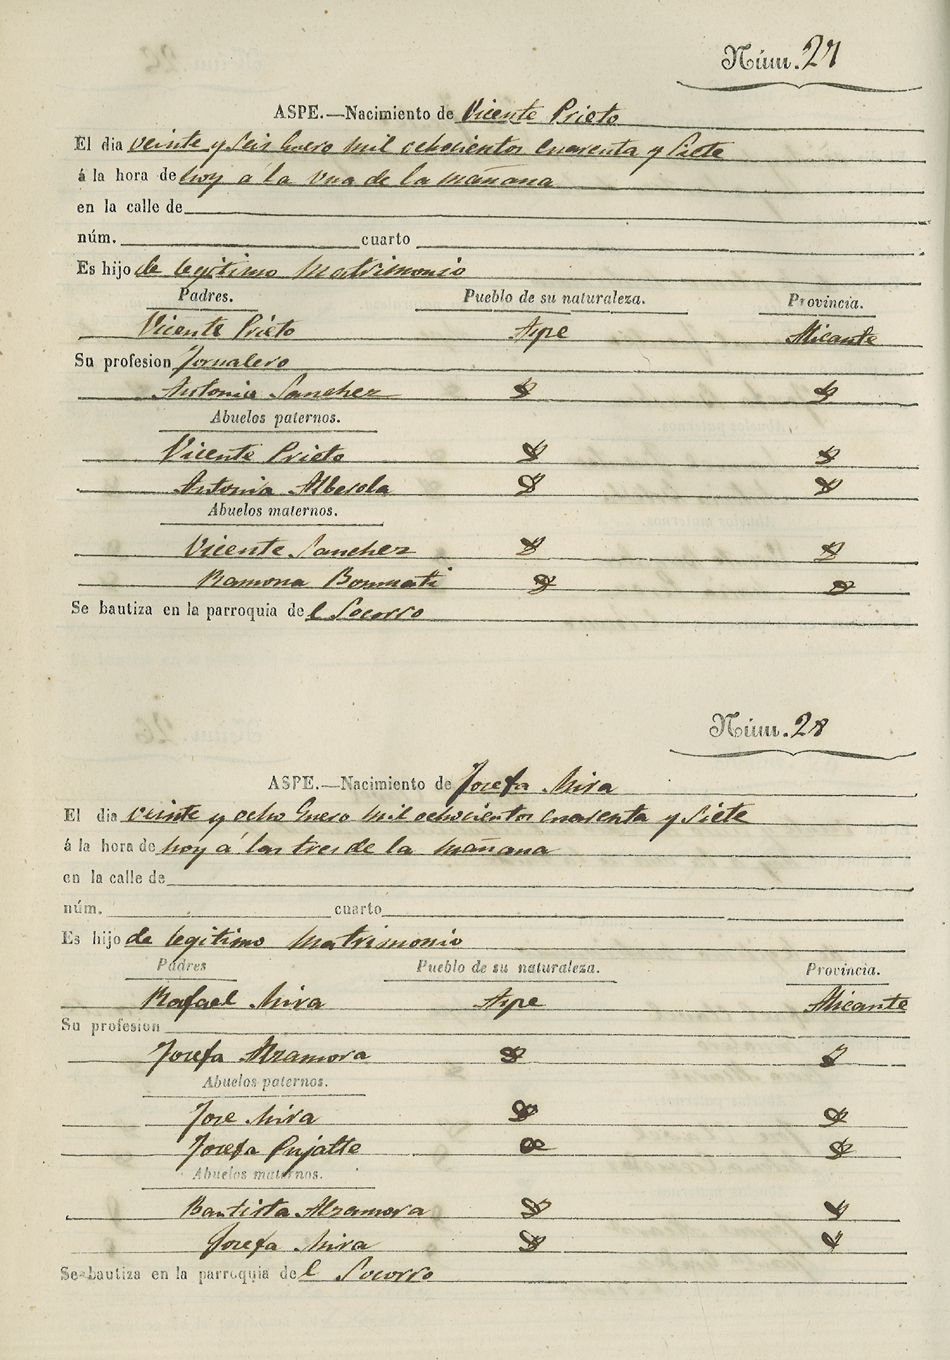 Núm. 27
ASPE.—Nacimiento de Vicente Prieto
El dia veinte y seis Enero mil ochocientos cuarenta y siete
á la hora de hoy a la una de la mañana
en la calle de
núm. cuarto
Es hijo de legitimo Matrimonio
Padres. Pueblo de su naturaleza. Provincia.
Vicente Prieto Aspe Alicante
Su profesion Jornalero
Antonia Sanchez
Abuelos paternos.
Vicente Prieto
Antonia Alberola
Abuelos maternos.
Vicente Sanchez
Ramona Bonmati
Se bautiza en la parroquia de l Socorro
Núm. 28
ASPE.—Nacimiento de Josefa Mira
El dia veinte y ocho Enero mil ochocientos cuarenta y siete
á la hora de hoy á las tres de la mañana
en la calle de
núm. cuarto
Es hijo de legitimo Matrimonio
Padres Pueblo de su naturaleza. Provincia.
Rafael Mira Aspe Alicante
Su profesion
Josefa Alzamora
Abuelos paternos.
Jose Mira
Josefa Pujalte
Abuelos maternos.
Bautista Alzamora
Josefa Mira
Se bautiza en la parroquia de l Socorro